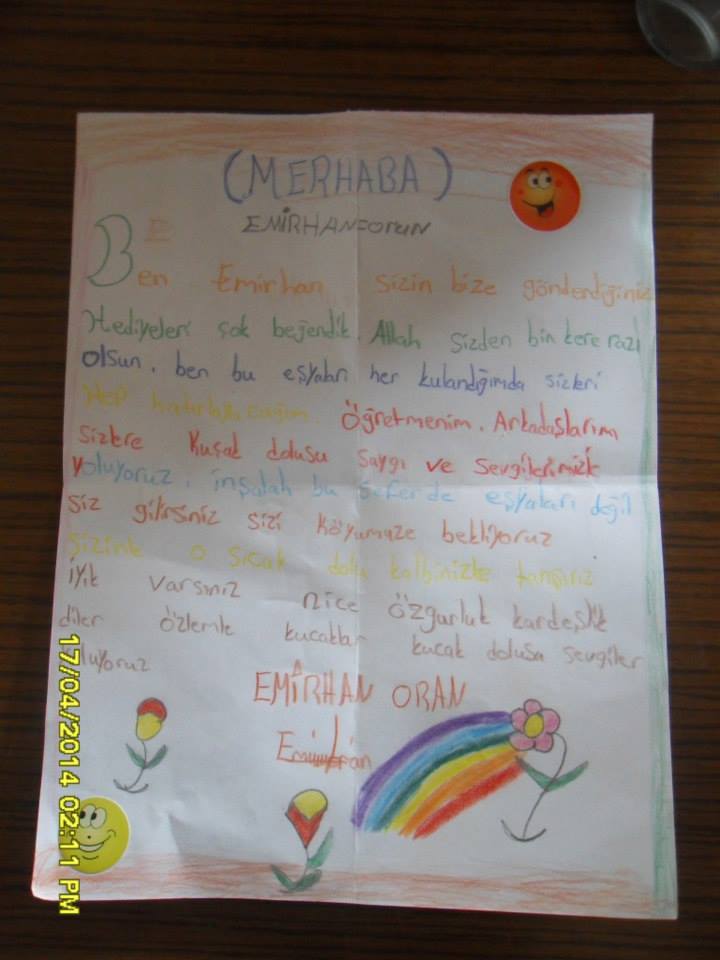 (MERHABA)
EMİRHAN ORUN
Ben Emirhan sizin bize gönderdiğiniz
Hediyeleri çok beğendik. Allah sizden bin kere razı
olsun. ben bu eşyaları her kulandığımda sizleri
Hep hatırlayacağım. Öğretmenim. Arkadaşlarım
sizlere kucak dolusu saygı ve sevgilerimizle
yoluyoruz. inşalah bu sefer de eşyaları değil
siz gilirsiniz sizi köyumuze bekliyoruz
sizinle o sıcak dolu kalbinizle tanışırız
iyik varsınız nice özgurluk kardeşlik
diler özlemle kucaklar kucak dolusu sevgiler
yoluyoruz
EMİRHAN ORAN
17/04/2014 02:11 PM